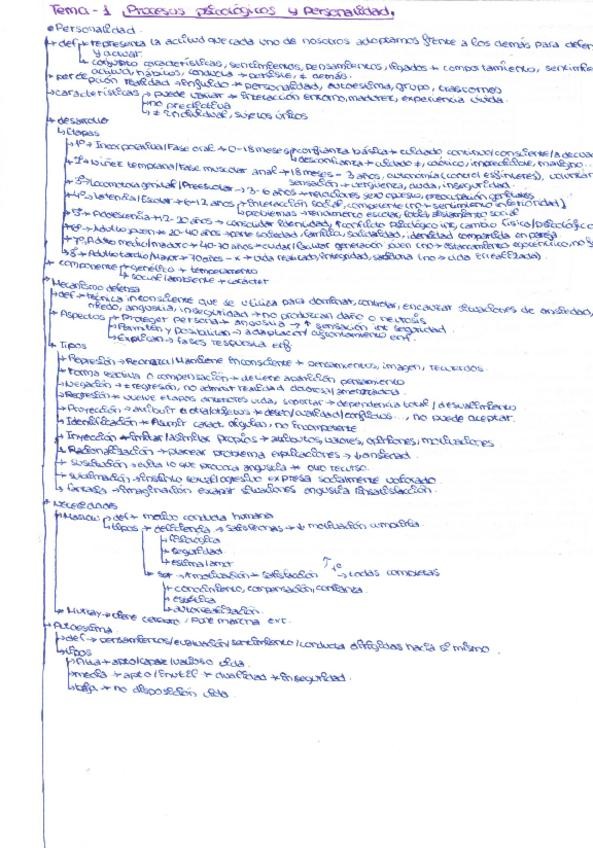 Tema-1 Procesos psicológicos y Personalidad.
• Personalidad.
def → representa la actitud que cada uno de nosotros adoptamos frente a los demás para
y actuar.
conjunto características, sentimientos, pensamientos, ligados + comportamiento,
actitud, hábitos, conducta → persiste, ≠ demás.
percepción realidad → influido + personalidad, autoestima, grupo, trastornos
características → puede variar + interacción entorno, madurez, experiencia vivida.
no predictiva
≠ individual, sujetos únicos
desarrollo
Etapas
1º + Incorporativa/Fase oral + 0-18 meses → confianza básica + cuidado continuo/consciente/
desconfianza + cuidado ≠, caótico, impredecible,
2º + Niñez temprana/Fase muscular anal + 18 meses - 3 años, autonomía (control esfínteres),
sensación + vergüenza, duda, inseguridad.
3º + locomotora genital/Preescolar → 3-6 años + relaciones sexo opuesto, preocupación genitales
4º + latencia/Escolar + 6-12 años → interacción social, competente (no + sentimiento inferioridad)
problemas → rendimiento escolar, aislamiento social
5º + Adolescencia + 12-20 años → consolidar identidad, conflicto psicológico int, cambio físico/psicológico
6º + Adulto joven + 20-40 años → parte sociedad, familia, solidaridad, identidad compartida en pareja
7º Adulto medio/maduro + 40-70 años + cuidar/educar generación joven
8º + Adulto tardío/Mayor + 70 años - x → vida realizada, integridad, sabiduría (no → vida fracasada).
componente → genético + temperamento
social/ambiente + carácter
Mecanismo defensa
def → técnica inconsciente que se utiliza para dominar, controlar, encauzar situaciones de ansiedad,
miedo, angustia, inseguridad → no produzcan daño o neurosis
Aspectos + Proteger persona → angustia → ↑ sensación int seguridad.
Permiten y posibilitan → adaptación/afrontamiento enf.
Explican → fases respuesta enf
Tipos
Represión → Rechaza/Mantiene inconsciente + pensamientos, imagen, recuerdos.
Forma reactiva o compensación + detiene aparición pensamiento
Negación → ≠ regresión, no admite realidad dolorosa/amenazadora
Regresión → vuelve etapas anteriores vida, soportar → dependencia total/desvalimiento
Proyección → atribuir a otra/objetos + deseo/cualidad/conflictos..., no puede aceptar.
Identificación + Asumir caract. alguien, no incompetente
Inyección + imitar/asimilar propios → atributos, valores, opiniones, motivaciones
Racionalización + planear problema explicaciones → ansiedad.
sustitución → evita lo que provoca angustia + otro recurso.
sublimación → instinto sexual/agresivo expresa socialmente valorado
fantasía → imaginación evadir situaciones angustia insatisfacción.
Necesidades
Maslow → def + medio conducta humana
tipos + deficiencia → satisfechas → ↓ motivación
fisiológica
seguridad.
estima/amor
ser → ↑ motivación + satisfacción → todas completas
conocimiento, compensación, confianza
estética
autorrealización
Murray → tiene cerebro, pone marcha ext.
Autoestima
def → pensamientos/evaluación/sentimiento/conducta dirigidas hacia sí mismo.
Tipos
Alta + apto/capaz/valioso vida.
media → apto/inutil + dualidad + inseguridad.
baja + no disposición vida.